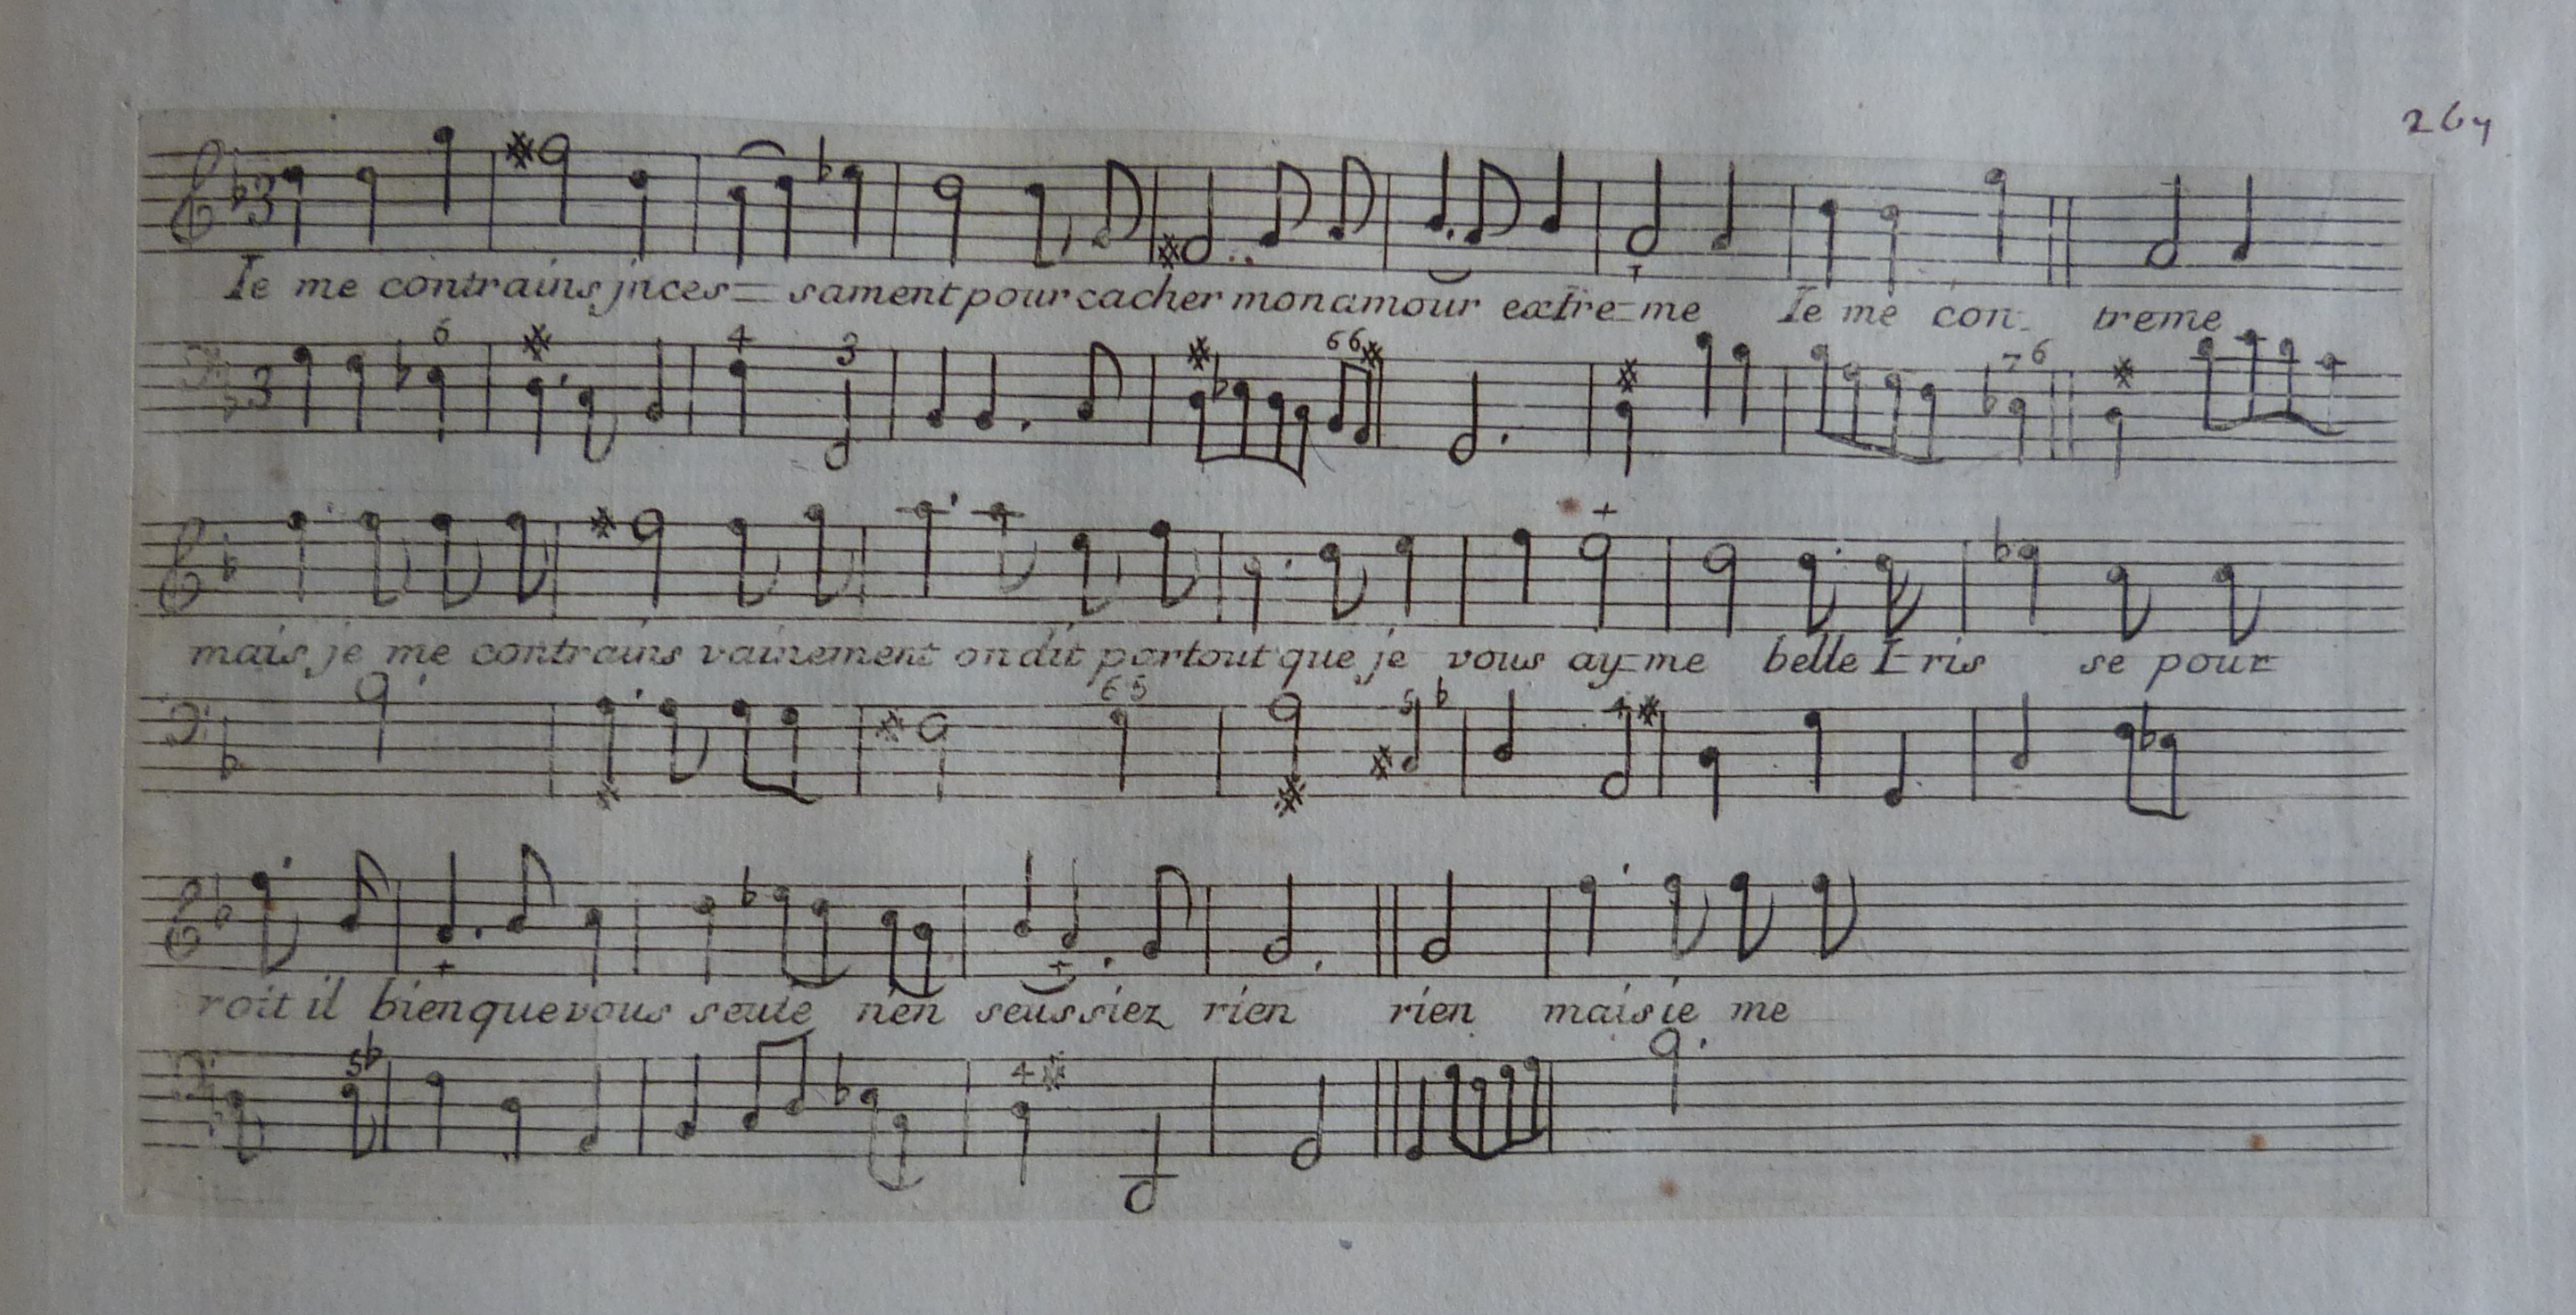 264
3
Ie me contrains jnces= sament pour cacher mon amour extre-me Ie me con- treme
6 4 3 6 6 7 6
3
mais je me contrains vainement on dit partout que je vous ay-me belle I-ris se pour
6 5 5 4
roit il bien que vous seule nen seussiez rien rien mais ie me
5 4